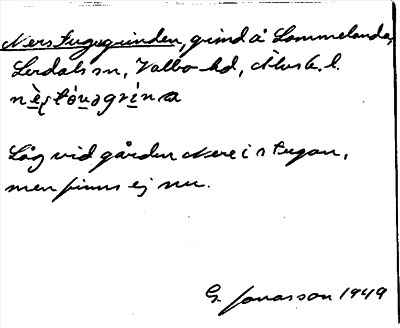 Nerstugugrinden, grind å Lommelanda,
Lerdals sn, Valbo hd, Älvsb. l.
Låg vid gården Nere i stugan,
men finns ej nu.
G. Jonasson 1949